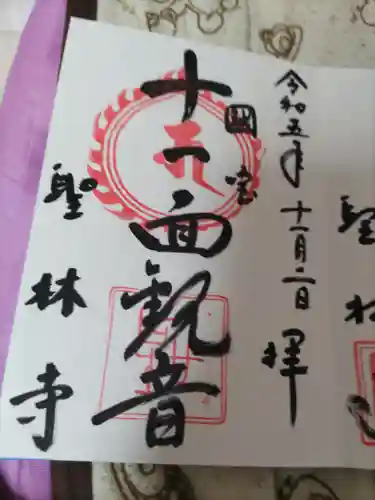 聖林
令和五年十一月二日 拝
国宝
十一面観音
聖林寺